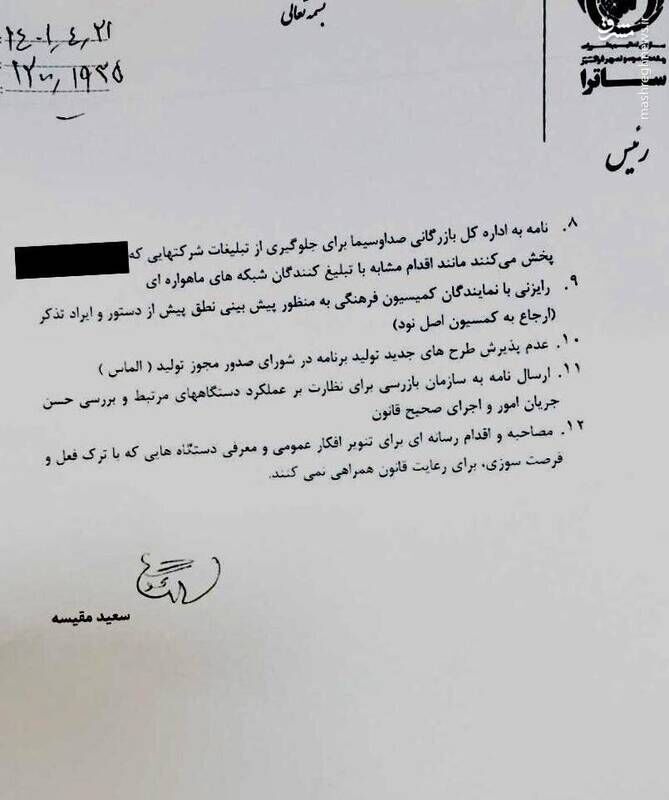 بسمه تعالی
۱۴۰۱/۴/۲۱
ساترا
رئیس
mashreghnews.ir
۸. نامه به اداره کل بازرگانی صداوسیما برای جلوگیری از تبلیغات شرکتهایی که
پخش می‌کنند مانند اقدام مشابه با تبلیغ کنندگان شبکه های ماهواره ای
۹. رایزنی با نمایندگان کمیسیون فرهنگی به منظور پیش بینی نطق پیش از دستور و ایراد تذکر
(ارجاع به کمسیون اصل نود)
۱۰. عدم پذیرش طرح های جدید تولید برنامه در شورای صدور مجوز تولید ( الماس )
۱۱. ارسال نامه به سازمان بازرسی برای نظارت بر عملکرد دستگاههای مرتبط و بررسی حسن
جریان امور و اجرای صحیح قانون
۱۲. مصاحبه و اقدام رسانه ای برای تنویر افکار عمومی و معرفی دستگاه هایی که با ترک فعل و
فرصت سوزی، برای رعایت قانون همراهی نمی کنند.
سعید مقیسه